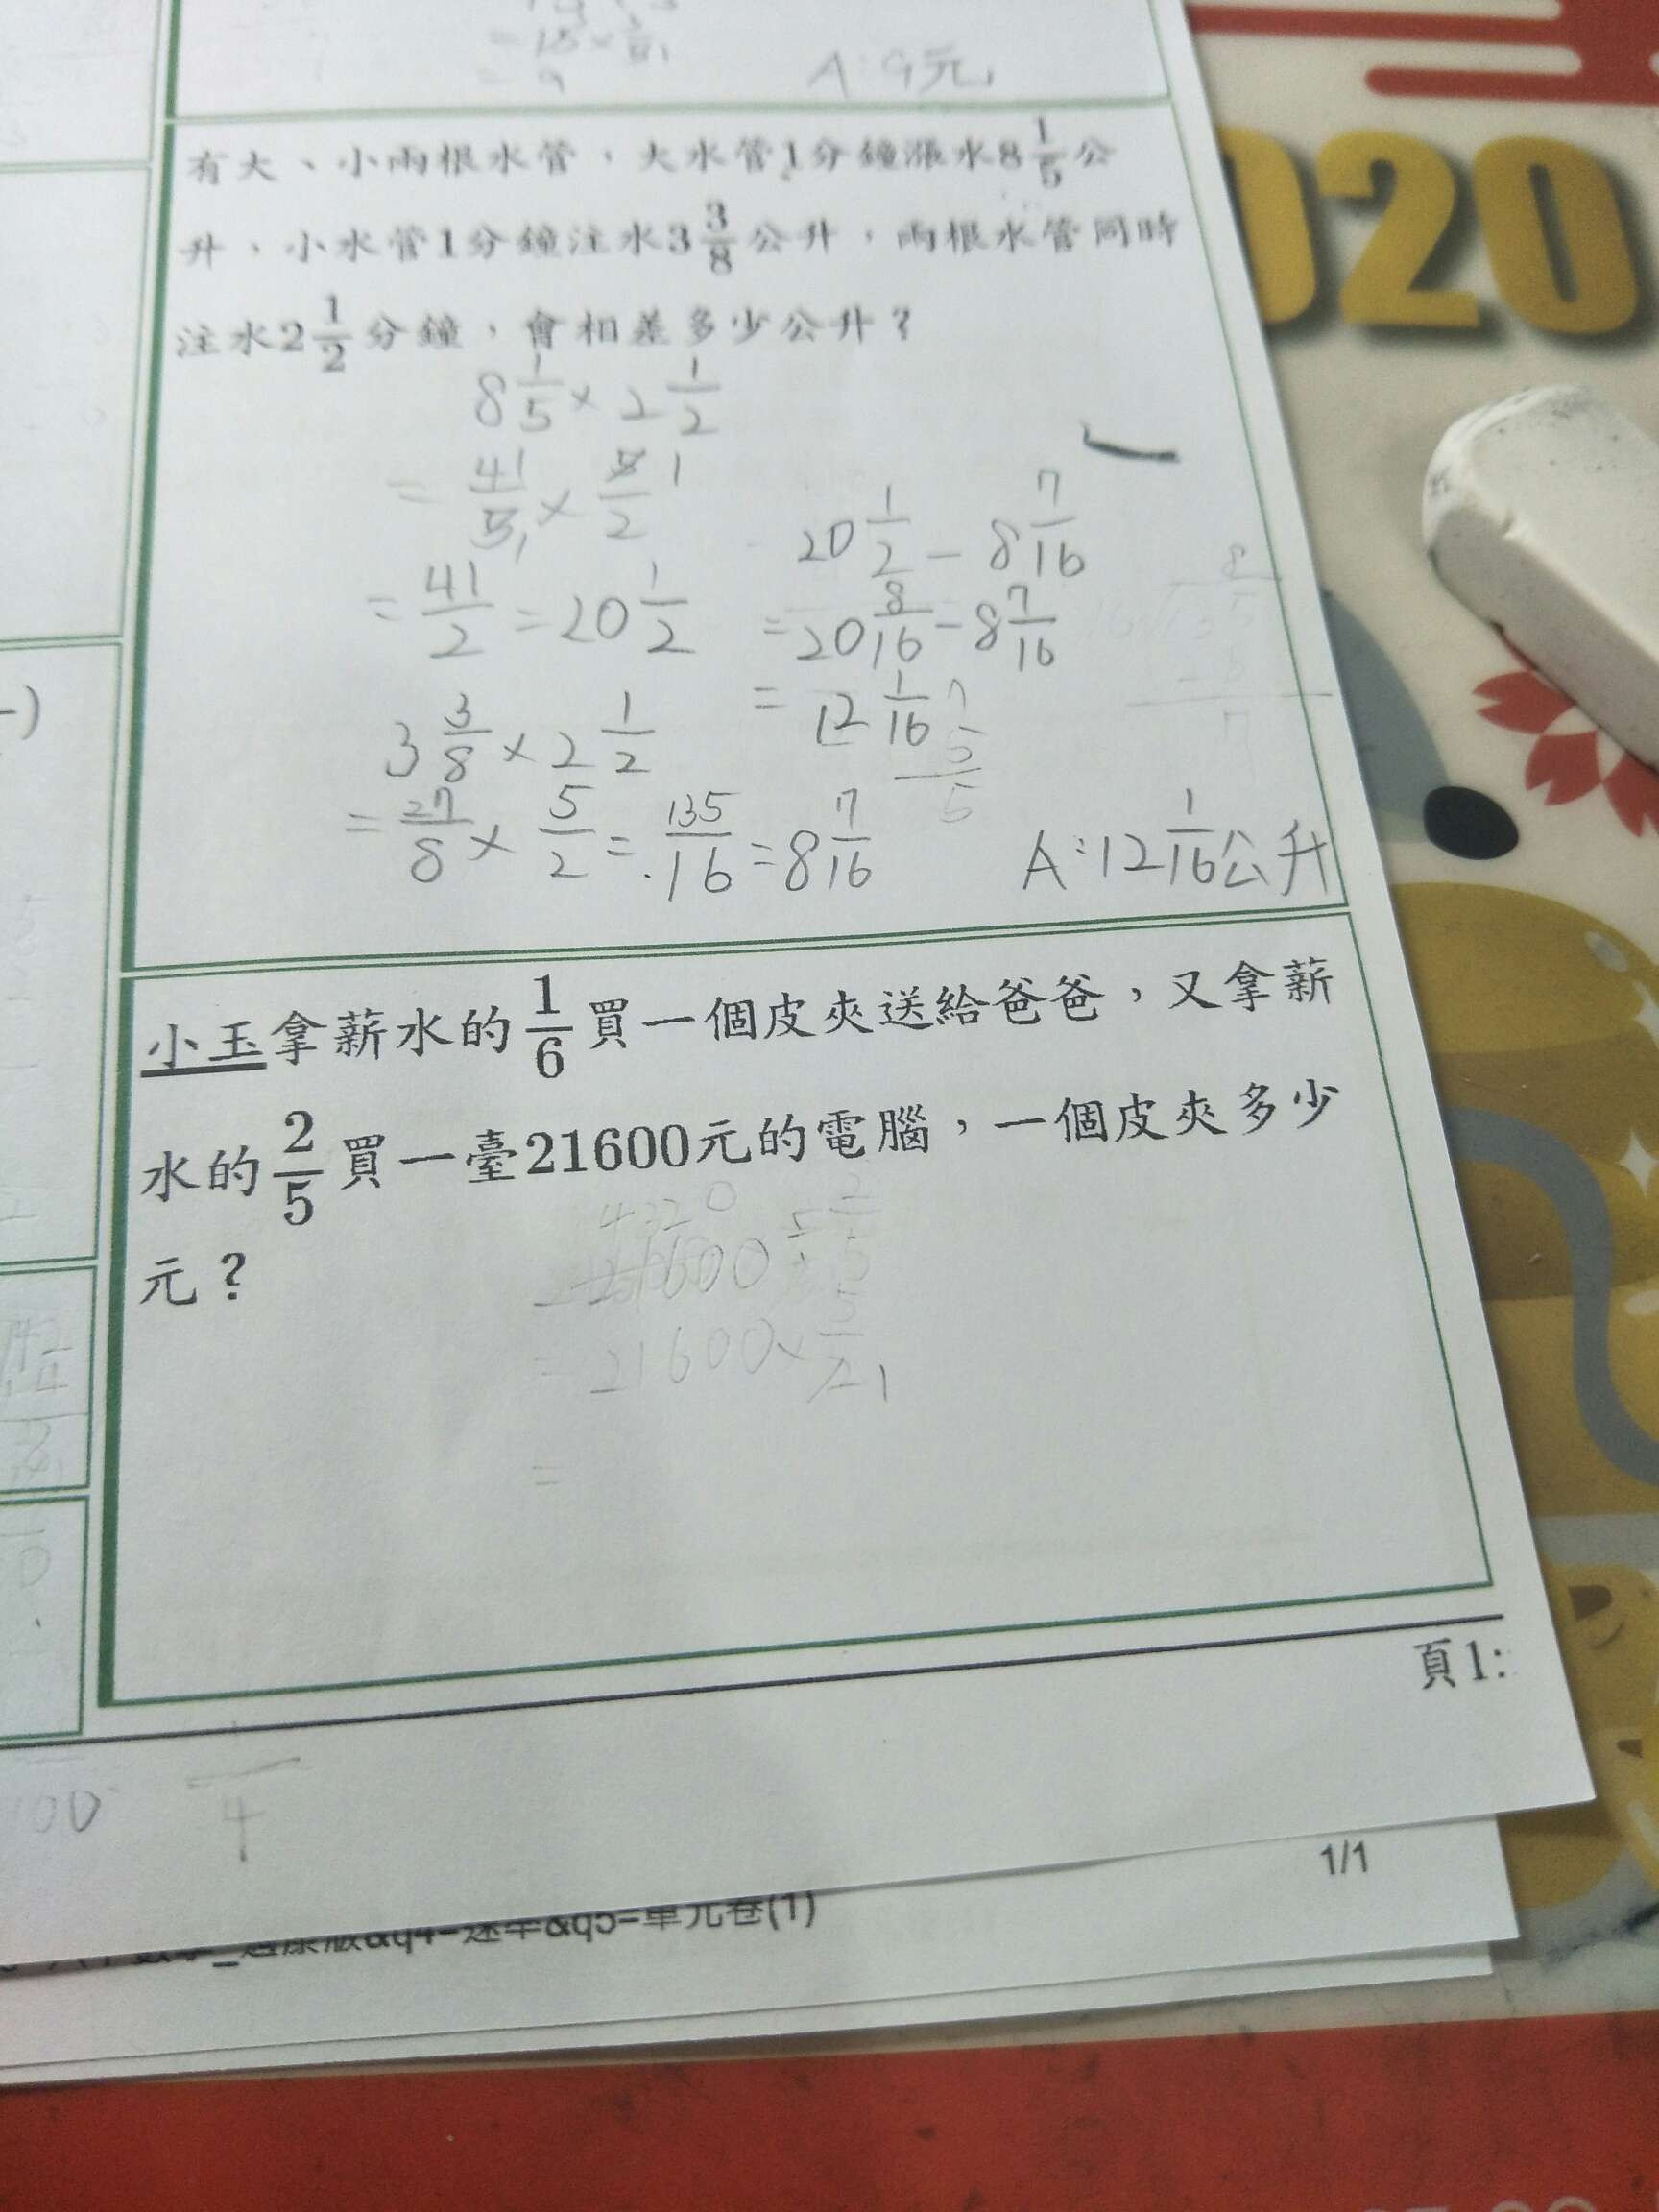 = 15 ×
= 9
A:9元
有大、小兩根水管,大水管1分鐘漲水8 1/5 公
升,小水管1分鐘注水3 3/8 公升,兩根水管同時
注水2 1/2 分鐘,會相差多少公升?
8 1/5 × 2 1/2
= 41/5 1 × 5/2 1
= 41/2 = 20 1/2
3 3/8 × 2 1/2
= 27/8 × 5/2 = 135/16 = 8 7/16
20 1/2 − 8 7/16
= 20 8/16 − 8 7/16
= 12 1/16
A:12 1/16 公升
小玉拿薪水的 1/6 買一個皮夾送給爸爸,又拿薪
水的 2/5 買一臺21600元的電腦,一個皮夾多少
元?
4320
21600 ÷ 2/5
= 21600 × 5/2 1
=
頁1:
4
1/1
=單元卷(1)
020